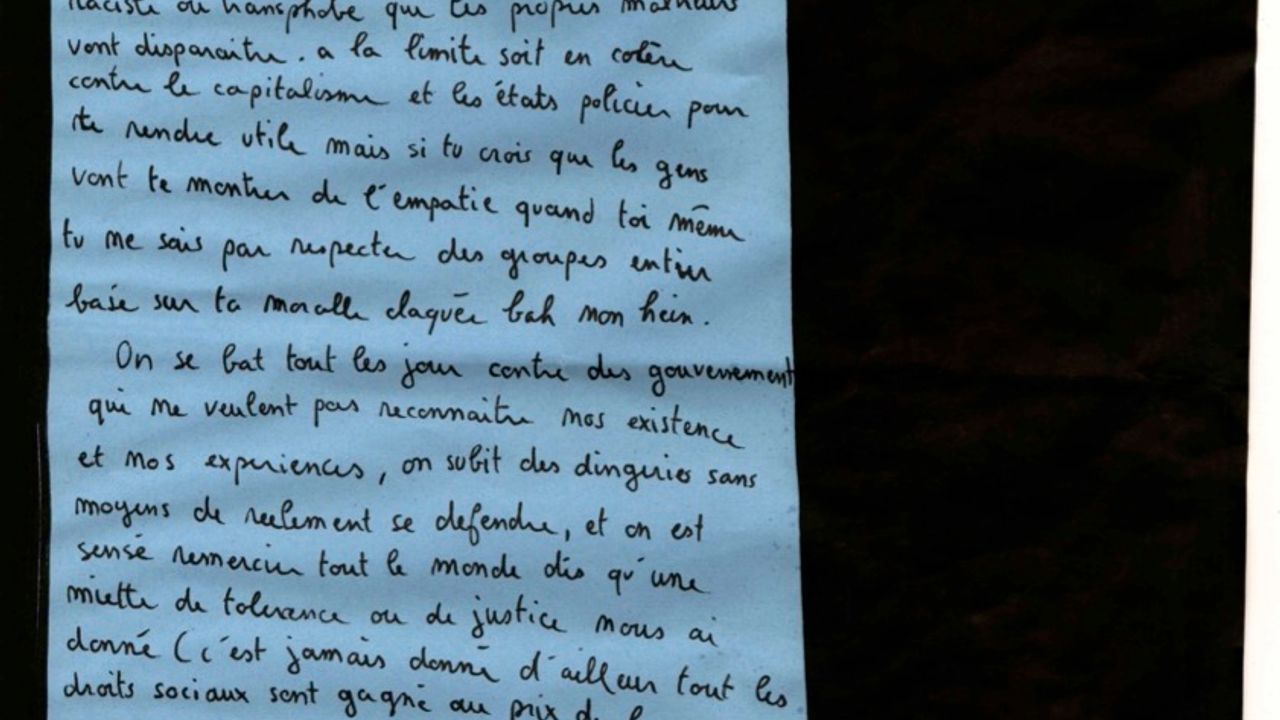 raciste ou transphobe que tes propres malheurs
vont disparaitre. a la limite soit en colère
contre le capitalisme et les états policier pour
te rendre utile mais si tu crois que les gens
vont te montrer de l'empatie quand toi même
tu ne sais pas respecter des groupes entier
basé sur ta moralle claquée bah non hein.
On se bat tout les jour contre des gouvernement
qui ne veulent pas reconnaitre nos existence
et nos experiences, on subit des dingeries sans
moyens de reelement se defendre, et on est
sensé remercier tout le monde dès qu'une
miette de tolerance ou de justice nous ai
donné (c'est jamais donné d'ailleur tout les
droits sociaux sont gagné au prix de